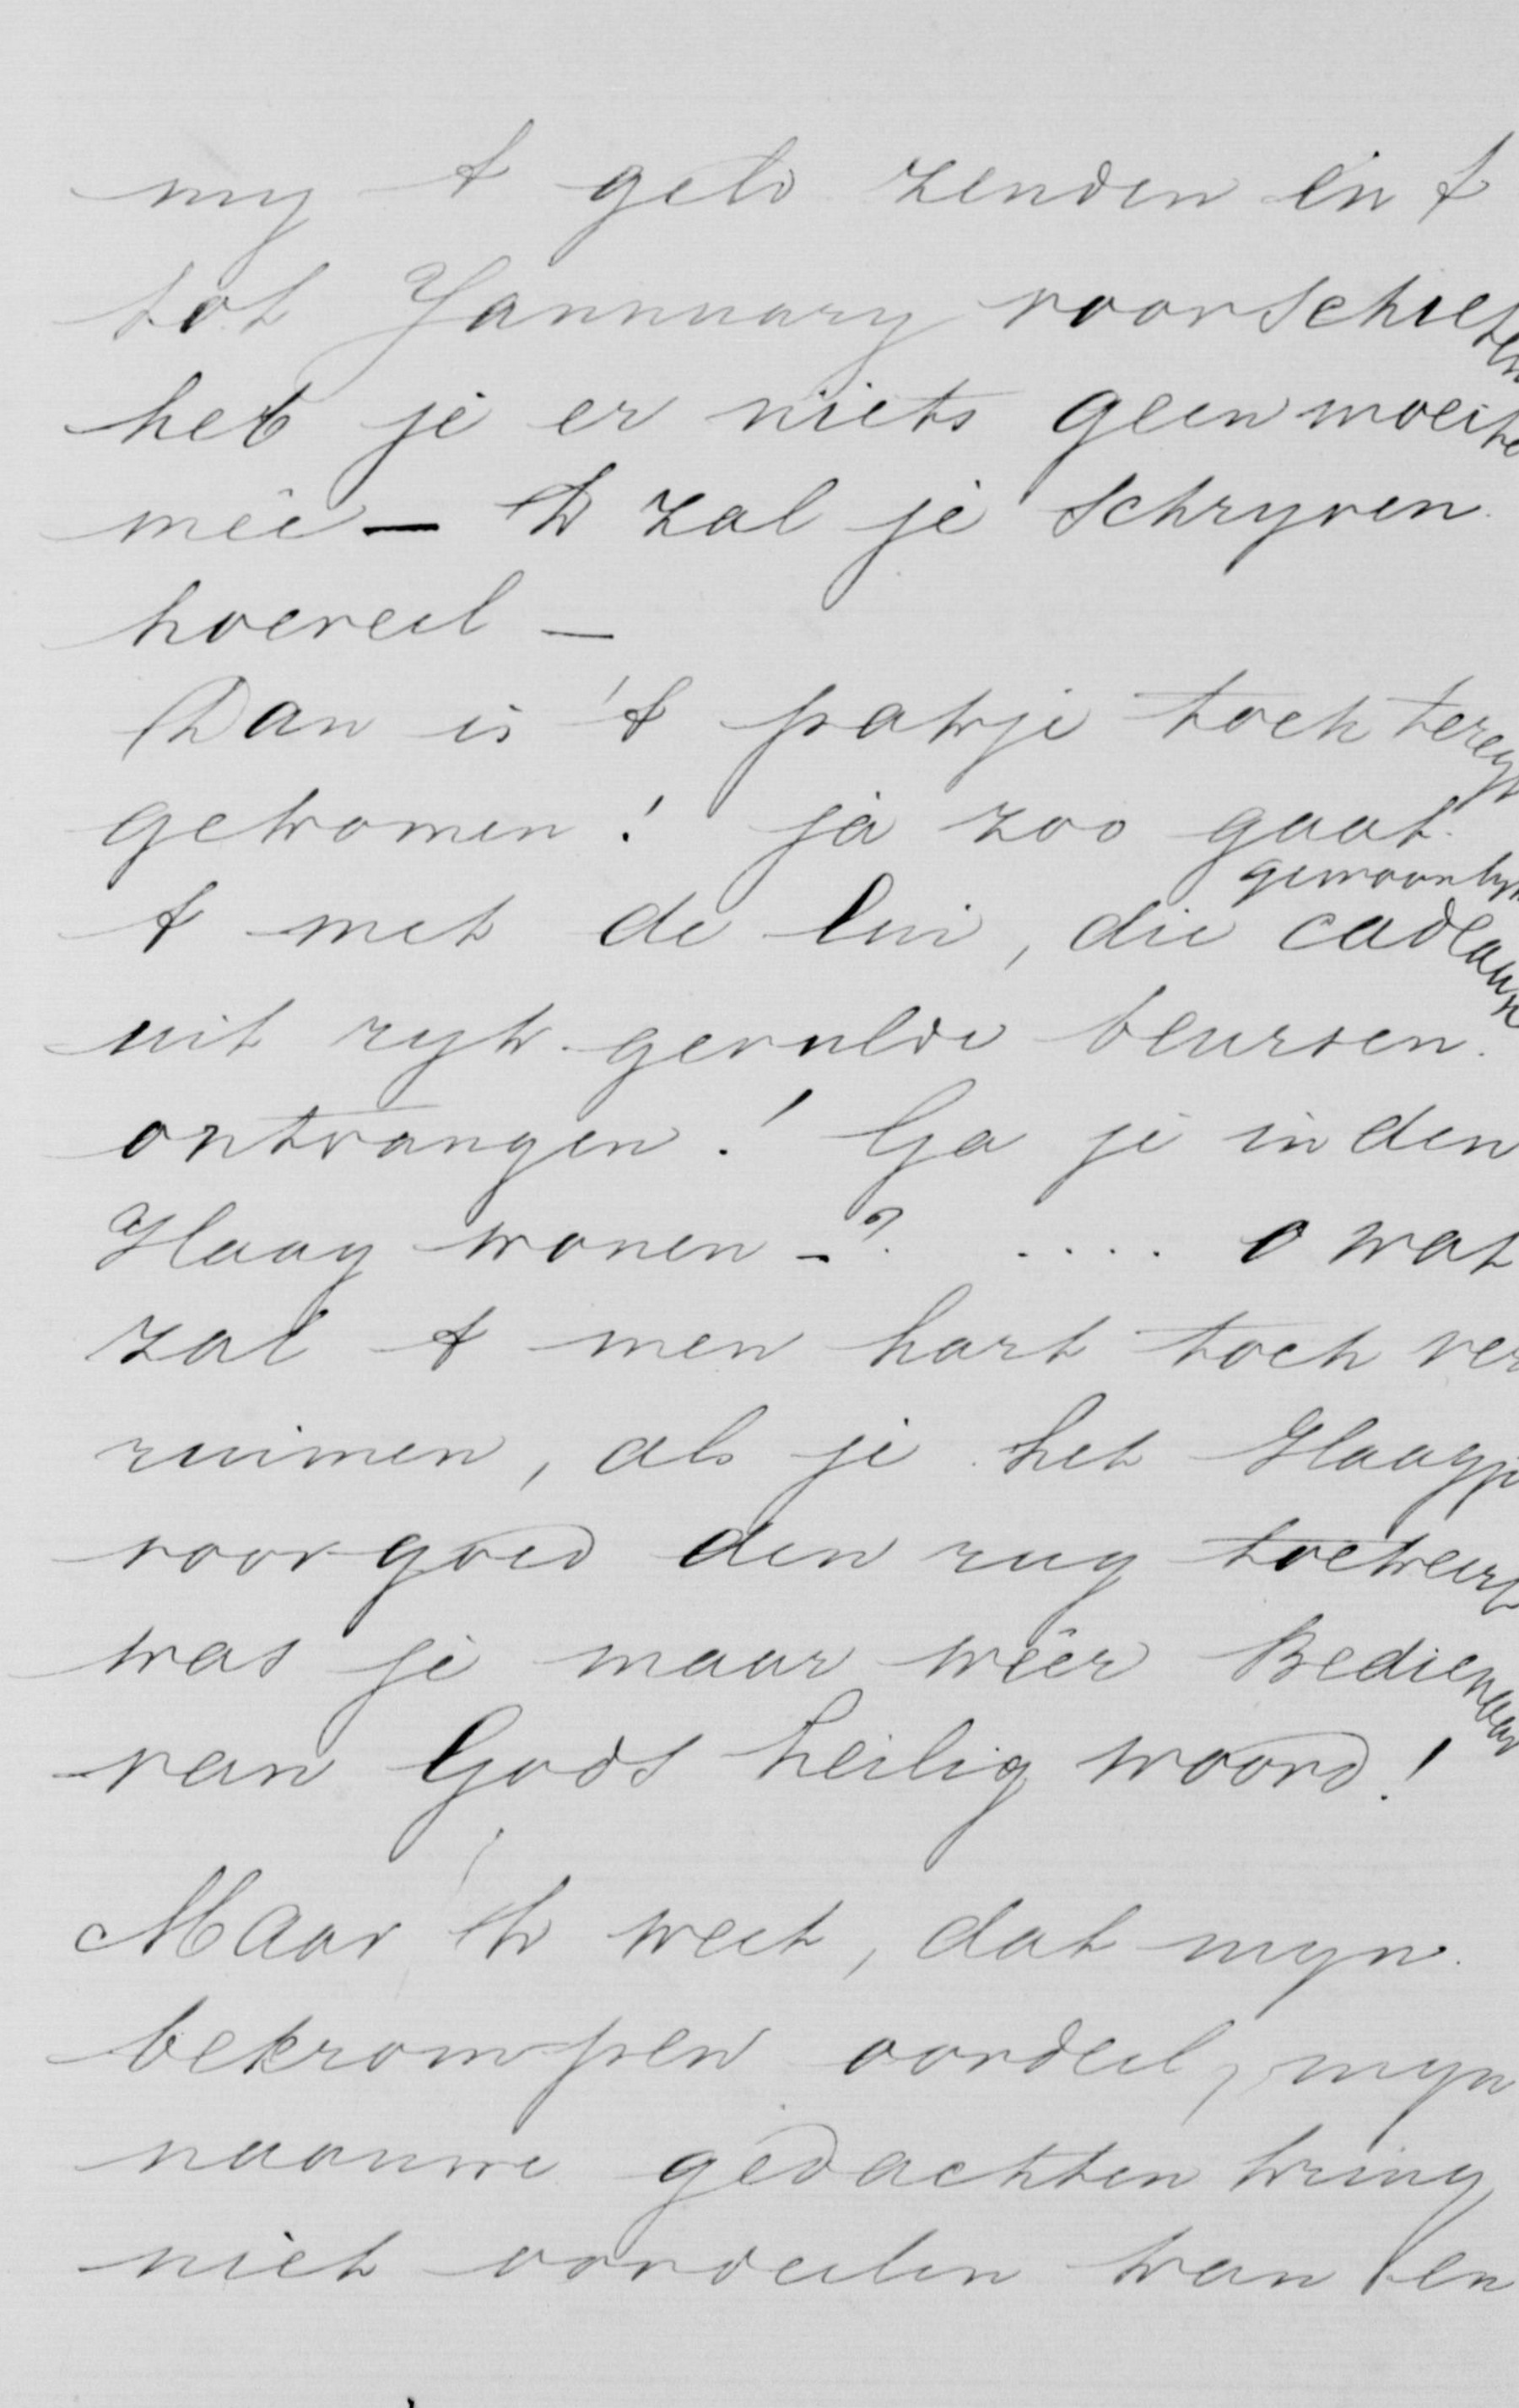 my t geld zenden én t
tot Jannuary voorschieten
heb je er niets geen moeite
meê — Ik zal je schryven
hoeveel —
Dan is 't pakje toch tereg
gekomen! ja zoo gaat
gewoonlyk
t met de lui, die cadeaux
uit ryk gevulde beursen
ontvangen! Ga je in den
Haag wonen —? .... o wat
zal t men hart toch ver
ruimen, als je het Haagje
voorgoed den rug toekeert
was je maar wêer Bedienaar
van Gods heilig woord!
Maar ik weet, dat myn
bekrompen oordeel, myn
naauwe gedachten kring
niet oordeelen kan en